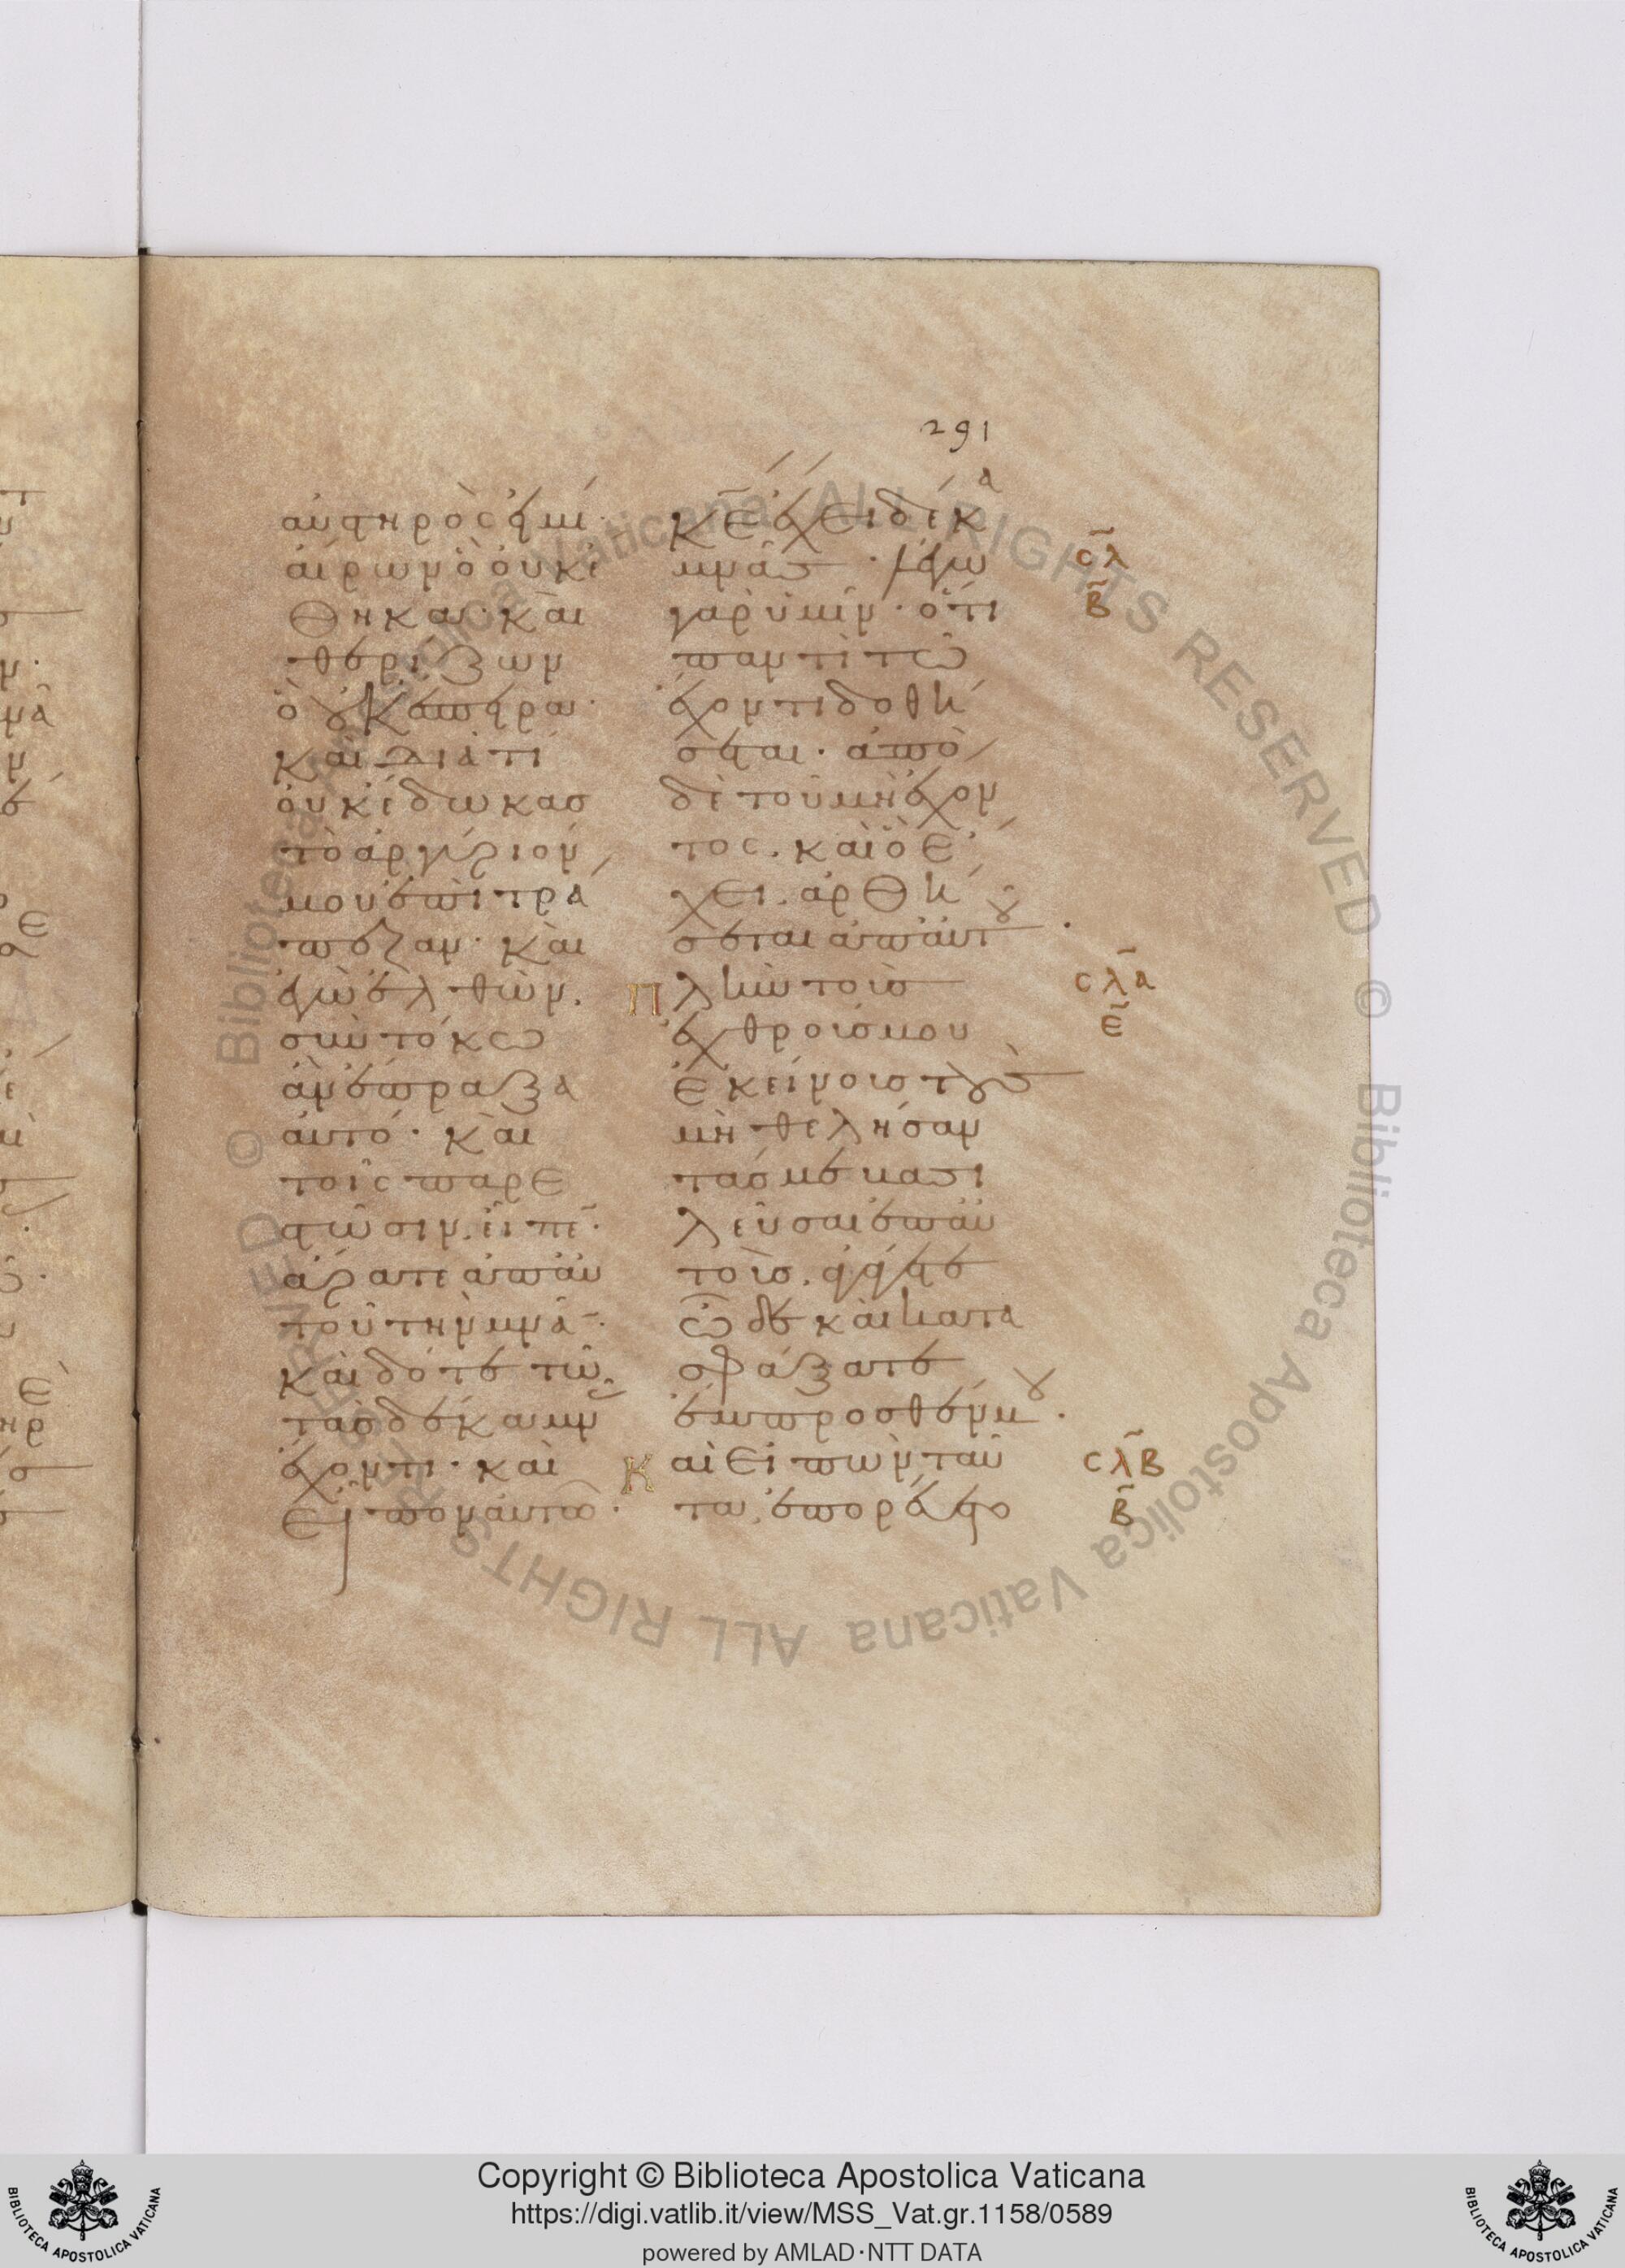 291
αὐστηρός εἰμι·
αἴρων ὃ οὐκ ἔ
θηκα· καὶ
θερίζων
ὃ οὐκ ἔσπειρα·
καὶ διατί
οὐκ ἔδωκας
τὸ ἀργύριόν
μου ἐπὶ τρά
πεζαν· καὶ
ἐγὼ ἐλθὼν.
σὺν τόκω
ἂν ἔπραξα
αὐτό· καὶ
τοῖς παρε
στῶσιν. εἶπε·
ἄρατε ἀπ' αὐ
τοῦ τὴν μνᾶ·
καὶ δότε τῶ
τὰς δέκα μν
ἔχοντι· καὶ
εἶπον αὐτῶ·
κε ἔχει δέκα
μνᾶς· λέγω
γὰρ ὑμῖν· ὅτι
παντὶ τῶ
ἔχοντι δοθή
σεται· ἀπὸ
δὲ τοῦ μὴ ἔχον
τος. καὶ ὃ ἔ
χει. ἀρθή
σεται ἀπ' αὐτου·
Πλὴν τοὺς
ἐχθρούς μου
ἐκείνους τοὺς
μὴ θελήσαν
τάς με βασι
λεῦσαι ἐπ' αὐ
τούς. ἀγάγετε
ὧδε καὶ κατα
σφάξατε
ἔμπροσθέν μου·
Καὶ εἰπὼν ταῦ
τα, ἐπορεύετο
σλ
β
σλα
ε
σλβ
β
Copyright © Biblioteca Apostolica Vaticana
https://digi.vatlib.it/view/MSS_Vat.gr.1158/0589
powered by AMLAD·NTT DATA
BIBLIOTECA APOSTOLICA VATICANA
BIBLIOTECA APOSTOLICA VATICANA
© Biblioteca Apostolica Vaticana ALL RIGHTS RESERVED
© Biblioteca Apostolica Vaticana ALL RIGHTS RESERVED